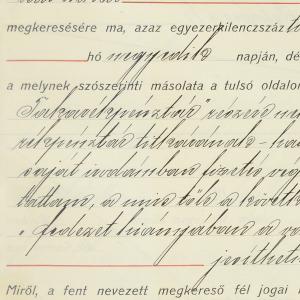 megkeresésére ma, azaz egyezerkilenczszáz
hó negyedik napján, dé
a melynek szószerinti másolata a tulsó oldalon
Takarékpénztár" részére
rékpénztár titkárának – ha
saját irodámban fizetés vég
tattam, a mire tőle a követk
„fedezet hiányában a
Miről, a fent nevezett megkereső fél jogai